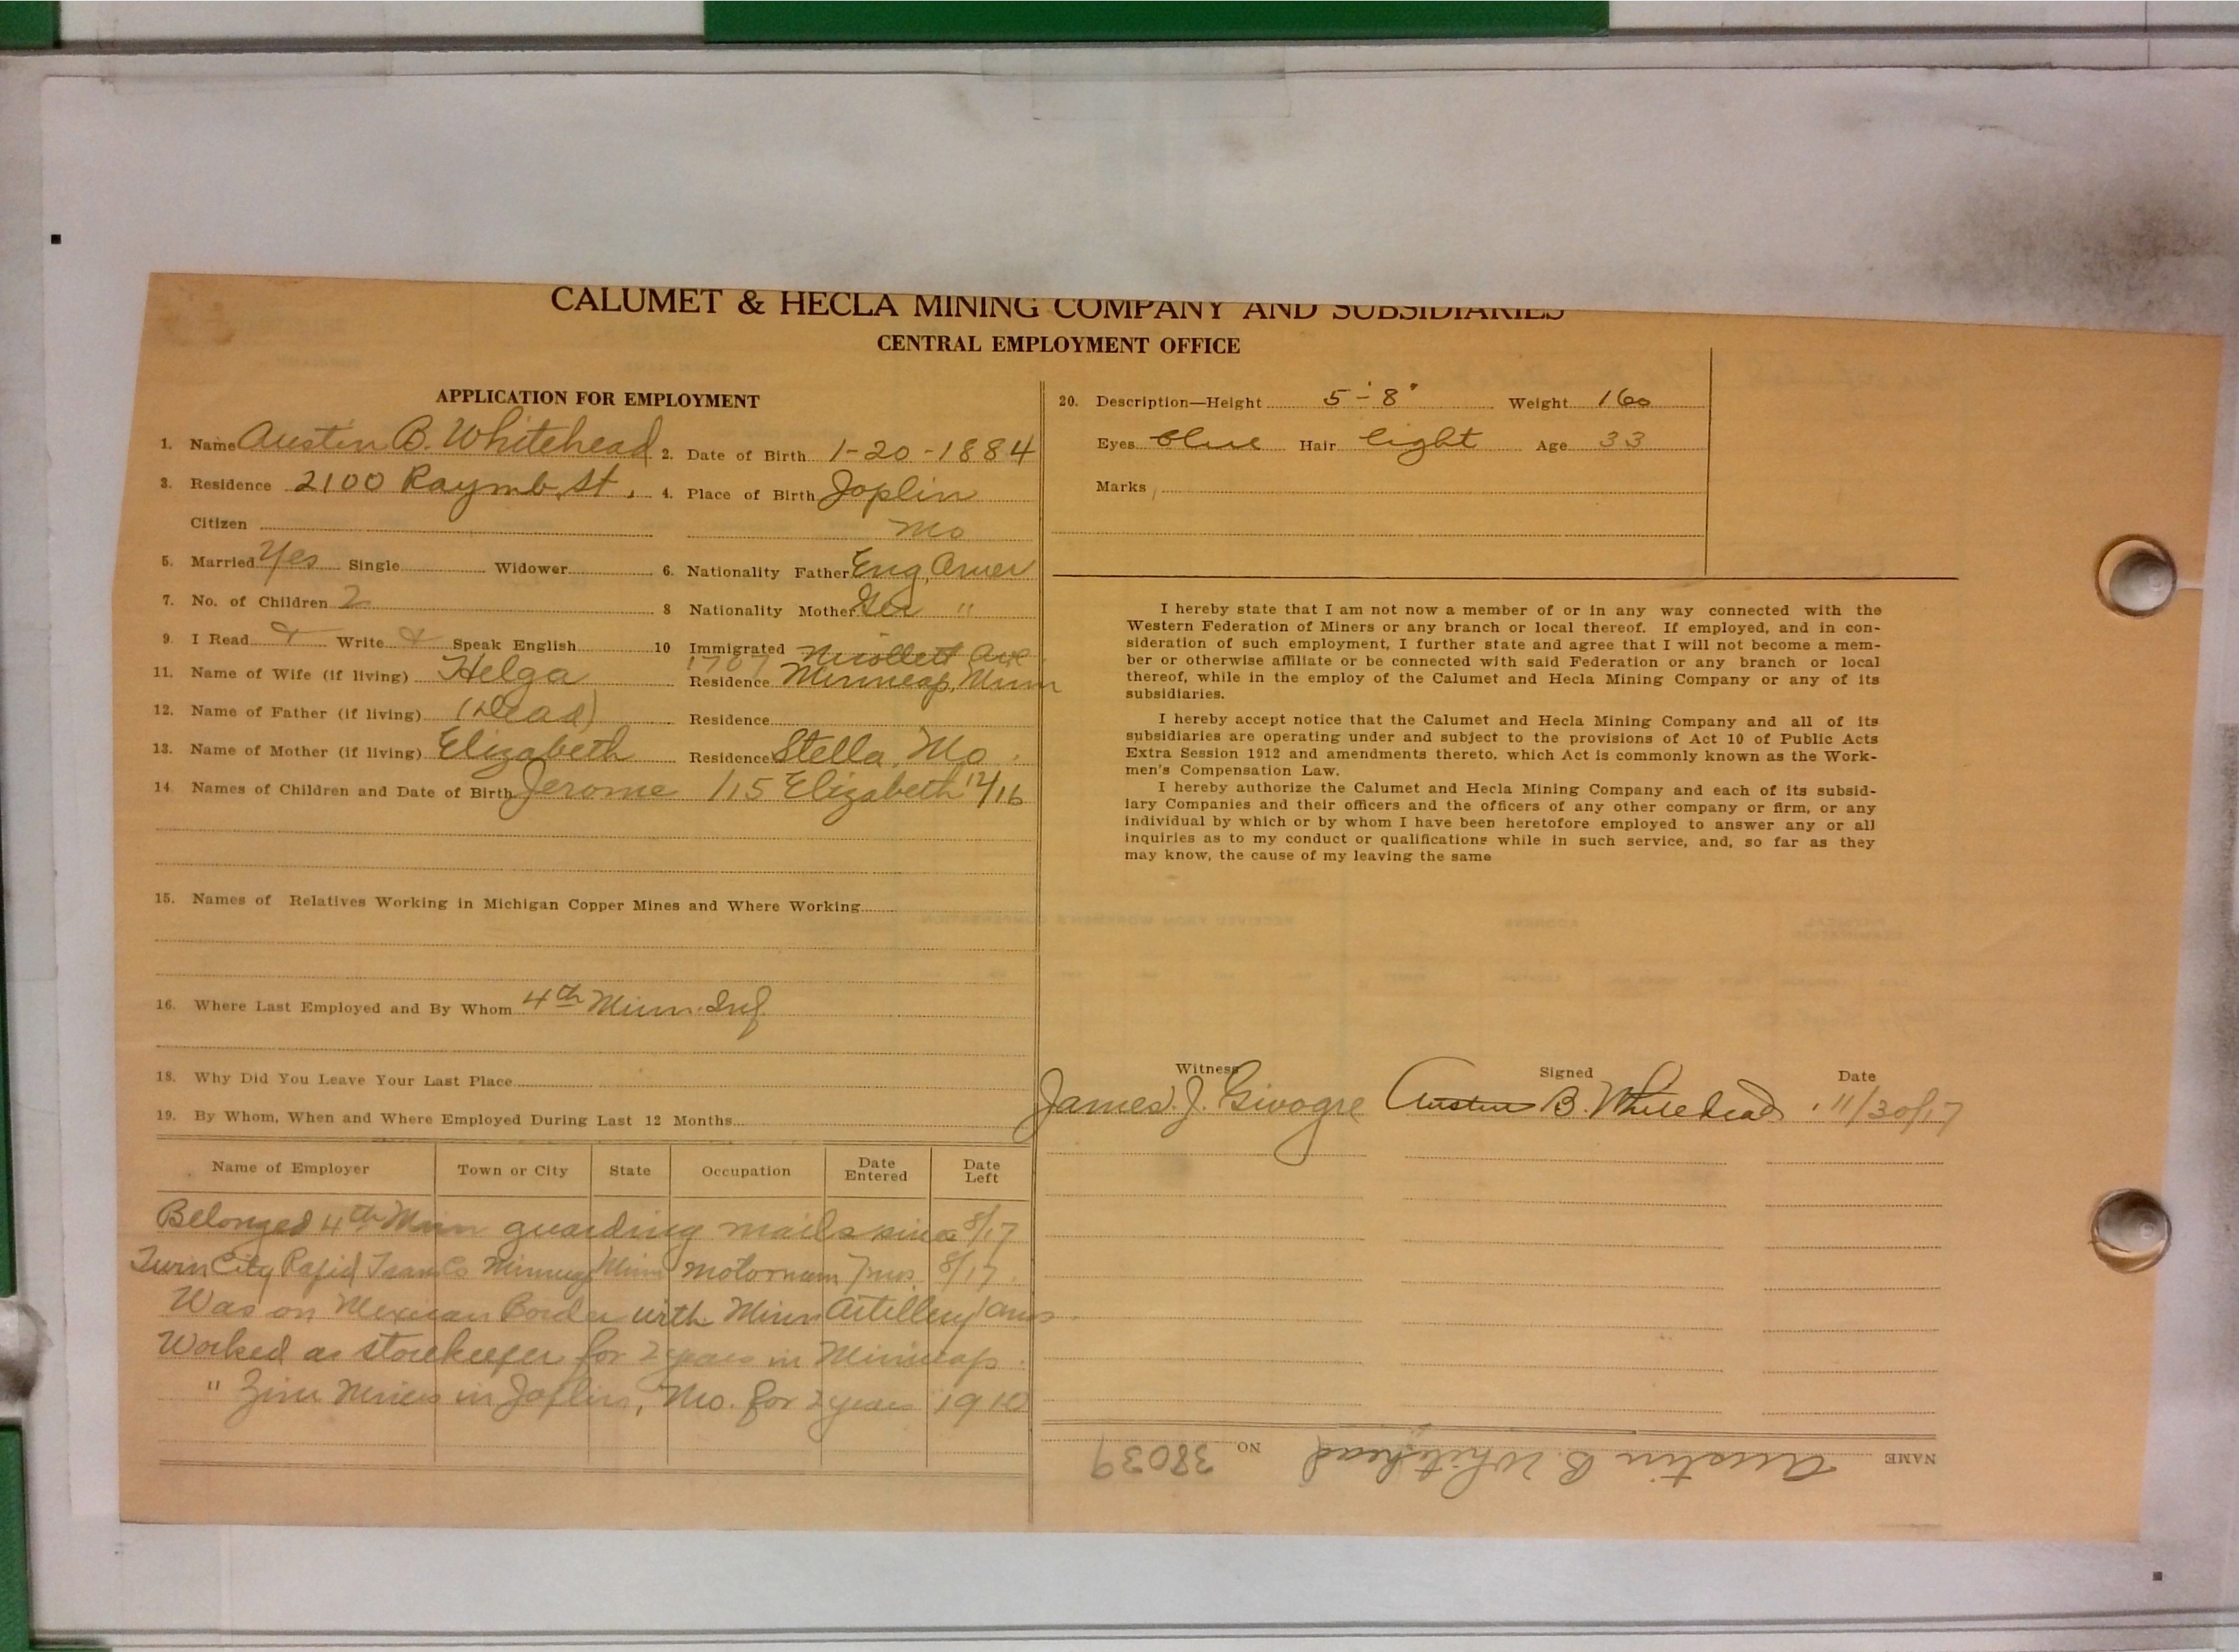 CALUMET & HECLA MINING COMPANY AND SUBSIDIARIES
CENTRAL EMPLOYMENT OFFICE
APPLICATION FOR EMPLOYMENT
1. Name Austin B. Whitehead 2. Date of Birth 1-20-1884
3. Residence 2100 Raymb. St. 4. Place of Birth Joplin
Citizen Mo
5. Married Yes Single Widower 6. Nationality Father Eng. Amer
7. No. of Children 2 8 Nationality Mother Ger "
9. I Read Write Speak English 10 Immigrated
1707 Nicollett Ave
11. Name of Wife (if living) Helga Residence Minneap, Minn
12. Name of Father (if living) (Dead) Residence
13. Name of Mother (if living) Elizabeth Residence Stella, Mo.
14. Names of Children and Date of Birth Jerome 1/15 Elizabeth 12/16
15. Names of Relatives Working in Michigan Copper Mines and Where Working
16. Where Last Employed and By Whom 4th Minn. Inf.
18. Why Did You Leave Your Last Place
19. By Whom, When and Where Employed During Last 12 Months
Name of Employer Town or City State Occupation Date Entered Date Left
Belonged 4th Minn guarding mails since 8/17
Twin City Rapid Tran Co Minneap Minn motorman 7 mos. 8/17.
Was on Mexican Border with Minn Artillery
Worked as storekeeper for 2 years in Minneap.
" Zinc Mines in Joplin, Mo. for 2 years 1910
20. Description—Height 5'-8" Weight 160
Eyes blue Hair light Age 33
Marks
I hereby state that I am not now a member of or in any way connected with the
Western Federation of Miners or any branch or local thereof. If employed, and in con-
sideration of such employment, I further state and agree that I will not become a mem-
ber or otherwise affiliate or be connected with said Federation or any branch or local
thereof, while in the employ of the Calumet and Hecla Mining Company or any of its
subsidiaries.
I hereby accept notice that the Calumet and Hecla Mining Company and all of its
subsidiaries are operating under and subject to the provisions of Act 10 of Public Acts
Extra Session 1912 and amendments thereto, which Act is commonly known as the Work-
men's Compensation Law.
I hereby authorize the Calumet and Hecla Mining Company and each of its subsid-
iary Companies and their officers and the officers of any other company or firm, or any
individual by which or by whom I have been heretofore employed to answer any or all
inquiries as to my conduct or qualifications while in such service, and, so far as they
may know, the cause of my leaving the same
Witness Signed Date
James. J. Austin B. Whitehead. 11/30/17
NAME Austin B. Whitehead NO 38039